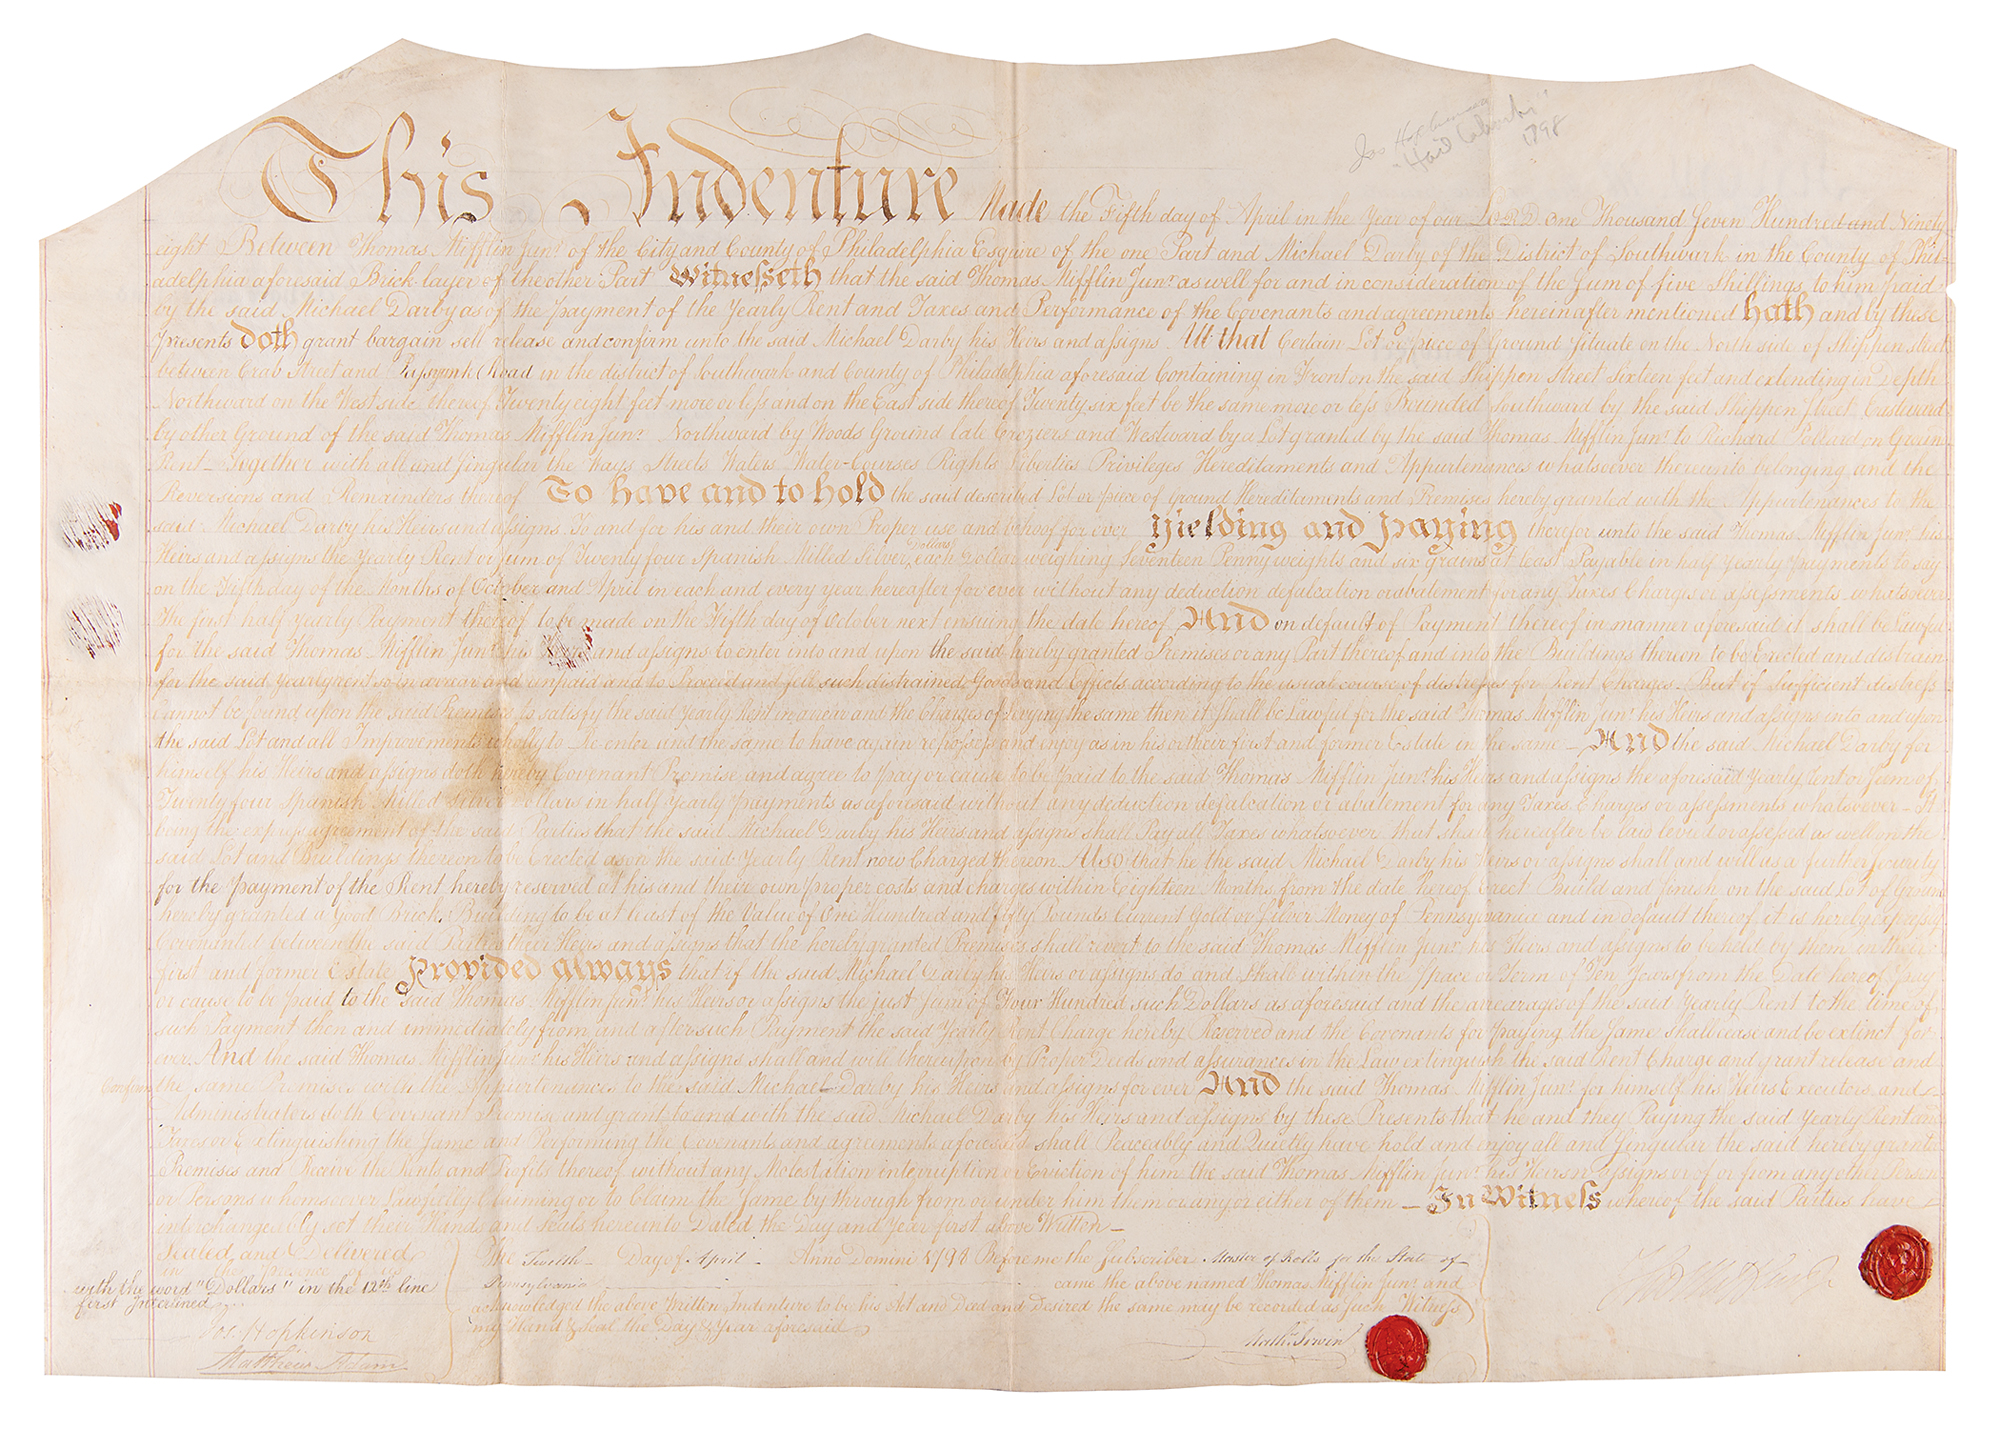 Jos Hopkinson
"Hail Columbia"
1798
This Indenture Made the Fifth day of April in the Year of our LORD One Thousand Seven Hundred and Ninety
eight Between Thomas Mifflin Junr. of the City and County of Philadelphia Esquire of the one Part and Michael Darby of the District of Southwark in the County of Phil-
adelphia aforesaid Brick layer of the other Part Witnesseth that the said Thomas Mifflin Junr. as well for and in consideration of the Sum of five Shillings to him paid
by the said Michael Darby as of the payment of the Yearly Rent and Taxes and Performance of the Covenants and agreements hereinafter mentioned hath and by these
Presents doth grant bargain sell release and confirm unto the said Michael Darby his Heirs and assigns All that Certain Lot or piece of Ground Situate on the North side of Shippen street
between Crab Street and Passyunk Road in the district of Southwark and County of Philadelphia aforesaid Containing in Front on the said Shippen Street Sixteen feet and extending in Depth
Northward on the West side thereof Twenty eight feet more or less and on the East side thereof Twenty six feet be the same more or less Bounded Southward by the said Shippen Street Eastward
by other Ground of the said Thomas Mifflin Junr. Northward by Woods Ground late Croziers and Westward by a Lot granted by the said Thomas Mifflin Junr. to Richard Pollard on Ground
Rent - Together with all and singular the Ways Streets Waters Water-Courses Rights Liberties Privileges Hereditaments and Appurtenances whatsoever thereunto belonging and the
Reversions and Remainders thereof To have and to hold the said described Lot or piece of ground Hereditaments and Premises hereby granted with the Appurtenances to the
said Michael Darby his Heirs and assigns To and for his and their own Proper use and behoof for ever Yielding and paying therefor unto the said Thomas Mifflin Junr. his
Heirs and assigns the Yearly Rent or Sum of Twenty four Spanish Milled Silver Dollars each Dollar weighing Seventeen Penny weights and six grains at least Payable in half Yearly payments to say
on the Fifth day of the Months of October and April in each and every year hereafter for ever without any deduction defalcation or abatement for any Taxes Charges or assessments whatsoever
The first half yearly Payment thereof to be made on the Fifth day of October next ensuing the date hereof And on default of Payment thereof in manner aforesaid it shall be lawful
for the said Thomas Mifflin Junr. his and assigns to enter into and upon the said hereby granted Premises or any Part thereof and into the Buildings thereon to be Erected and distrain
for the said yearly rent so in arrear and unpaid and to Proceed and sell such distrained Goods and Effects according to the usual course of distresses for Rent Charges - But if Sufficient distress
Cannot be found upon the said Premises to satisfy the said Yearly Rent in arrear and the Charges of levying the same then it Shall be Lawful for the said Thomas Mifflin Junr. his Heirs and assigns into and upon
the said Lot and all Improvements wholly to Re-enter and the same to have again repossess and enjoy as in his or their first and former Estate in the same - And the said Michael Darby for
himself his Heirs and assigns doth hereby Covenant Promise and agree to pay or cause to be paid to the said Thomas Mifflin Junr. his Heirs and assigns the aforesaid Yearly rent or Sum of
Twenty four Spanish Milled silver dollars in half yearly payments as aforesaid without any deduction defalcation or abatement for any Taxes Charges or assessments whatsoever - It
being the express agreement of the said Parties that the said Michael Darby his Heirs and assigns shall Pay all Taxes whatsoever that shall hereafter be laid levied or assessed as well on the
said Lot and Buildings thereon to be Erected as on the said Yearly Rent now Charged thereon Also that he the said Michael Darby his Heirs or assigns shall and will as a further security
for the payment of the Rent hereby reserved at his and their own proper costs and charges within Eighteen Months from the date hereof Erect Build and finish on the said Lot of Ground
hereby granted a Good Brick Building to be at least of the Value of One Hundred and fifty Pounds Current Gold or Silver Money of Pennsylvania and in default thereof it is hereby expressly
Covenanted between the said Parties their Heirs and assigns that the hereby granted Premises shall revert to the said Thomas Mifflin Junr. his Heirs and assigns to be held by them in their
first and former Estate Provided always that if the said Michael Darby his Heirs or assigns do and shall within the space or Term of Ten Years from the Date hereof pay
or cause to be paid to the said Thomas Mifflin Junr. his Heirs or assigns the just sum of Four Hundred such Dollars as aforesaid and the arrearages of the said Yearly Rent to the time of
such Payment then and immediately from and after such Payment the said Yearly Rent Charge hereby Reserved and the Covenants for paying the Same shall cease and be extinct for
ever And the said Thomas Mifflin Junr. his Heirs and assigns shall and will thereupon by Proper Deeds and assurances in the Law extinguish the said Rent Charge and grant release and
Confirm the same Premises with the Appurtenances to the said Michael Darby his Heirs and assigns for ever And the said Thomas Mifflin Junr. for himself his Heirs Executors and
Administrators doth Covenant Promise and grant to and with the said Michael Darby his Heirs and assigns by these Presents that he and they Paying the said Yearly Rent and
Taxes or Extinguishing the Same and Performing the Covenants and agreements aforesaid shall Peaceably and Quietly have hold and enjoy all and Singular the said hereby granted
Premises and Receive the Rents and Profits thereof without any Molestation interruption or Eviction of him the said Thomas Mifflin Junr. his Heirs or assigns or of or from any other Person
or Persons whomsoever Lawfully Claiming or to Claim the Same by through from or under him them or any or either of them - In Witness whereof the said Parties have
interchangeably set their Hands and Seals hereunto Dated the Day and Year first above Written -
Sealed and Delivered
in the Presence of us
with the word "Dollars" in the 12th line
first Interlined
Jos. Hopkinson
Matthew Adam
The Twelfth Day of April Anno Domini 1798 Before me the Subscriber Master of Rolls for the State of
Pennsylvania came the above named Thomas Mifflin Junr. and
acknowledged the above Written Indenture to be his Act and Deed and Desired the same may be recorded as such Witness
my Hand & Seal the Day & Year aforesaid
Mathw. Irwin
Tho Mifflin Jr